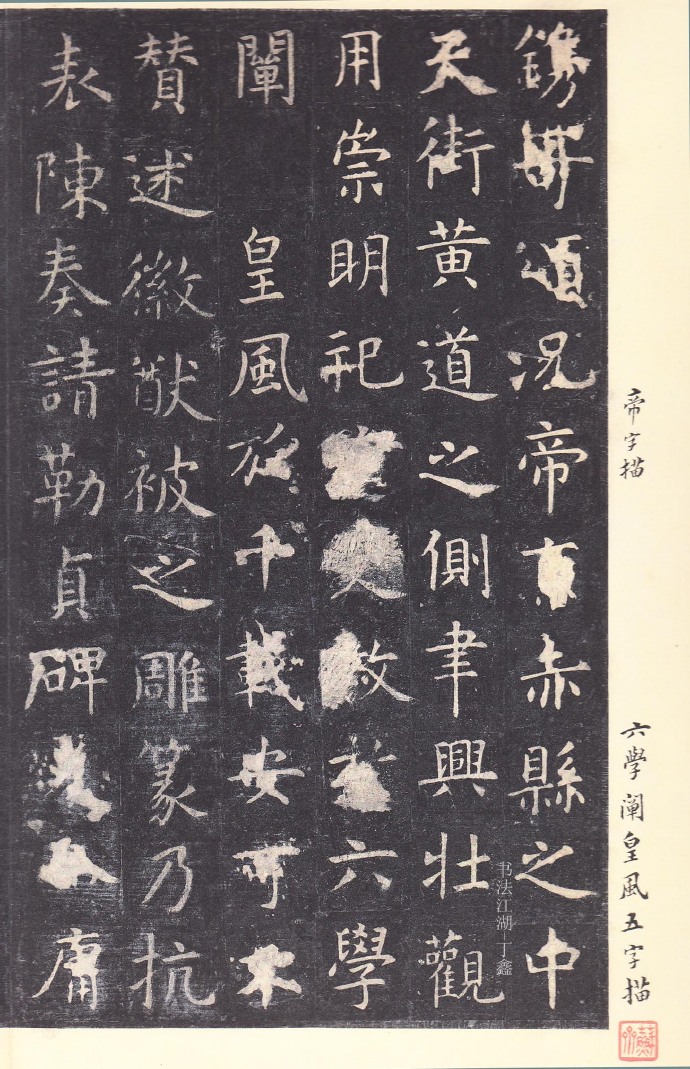 鐫無頌況帝京赤縣之中
天街黃道之側聿興壯觀
用崇明祀敷六學
闡皇風於千載安可不
贊述徽猷被之雕篆乃抗
表陳奏請勒貞碑庸
帝字描
六学阐皇風五字描
书法江湖 丁鑫